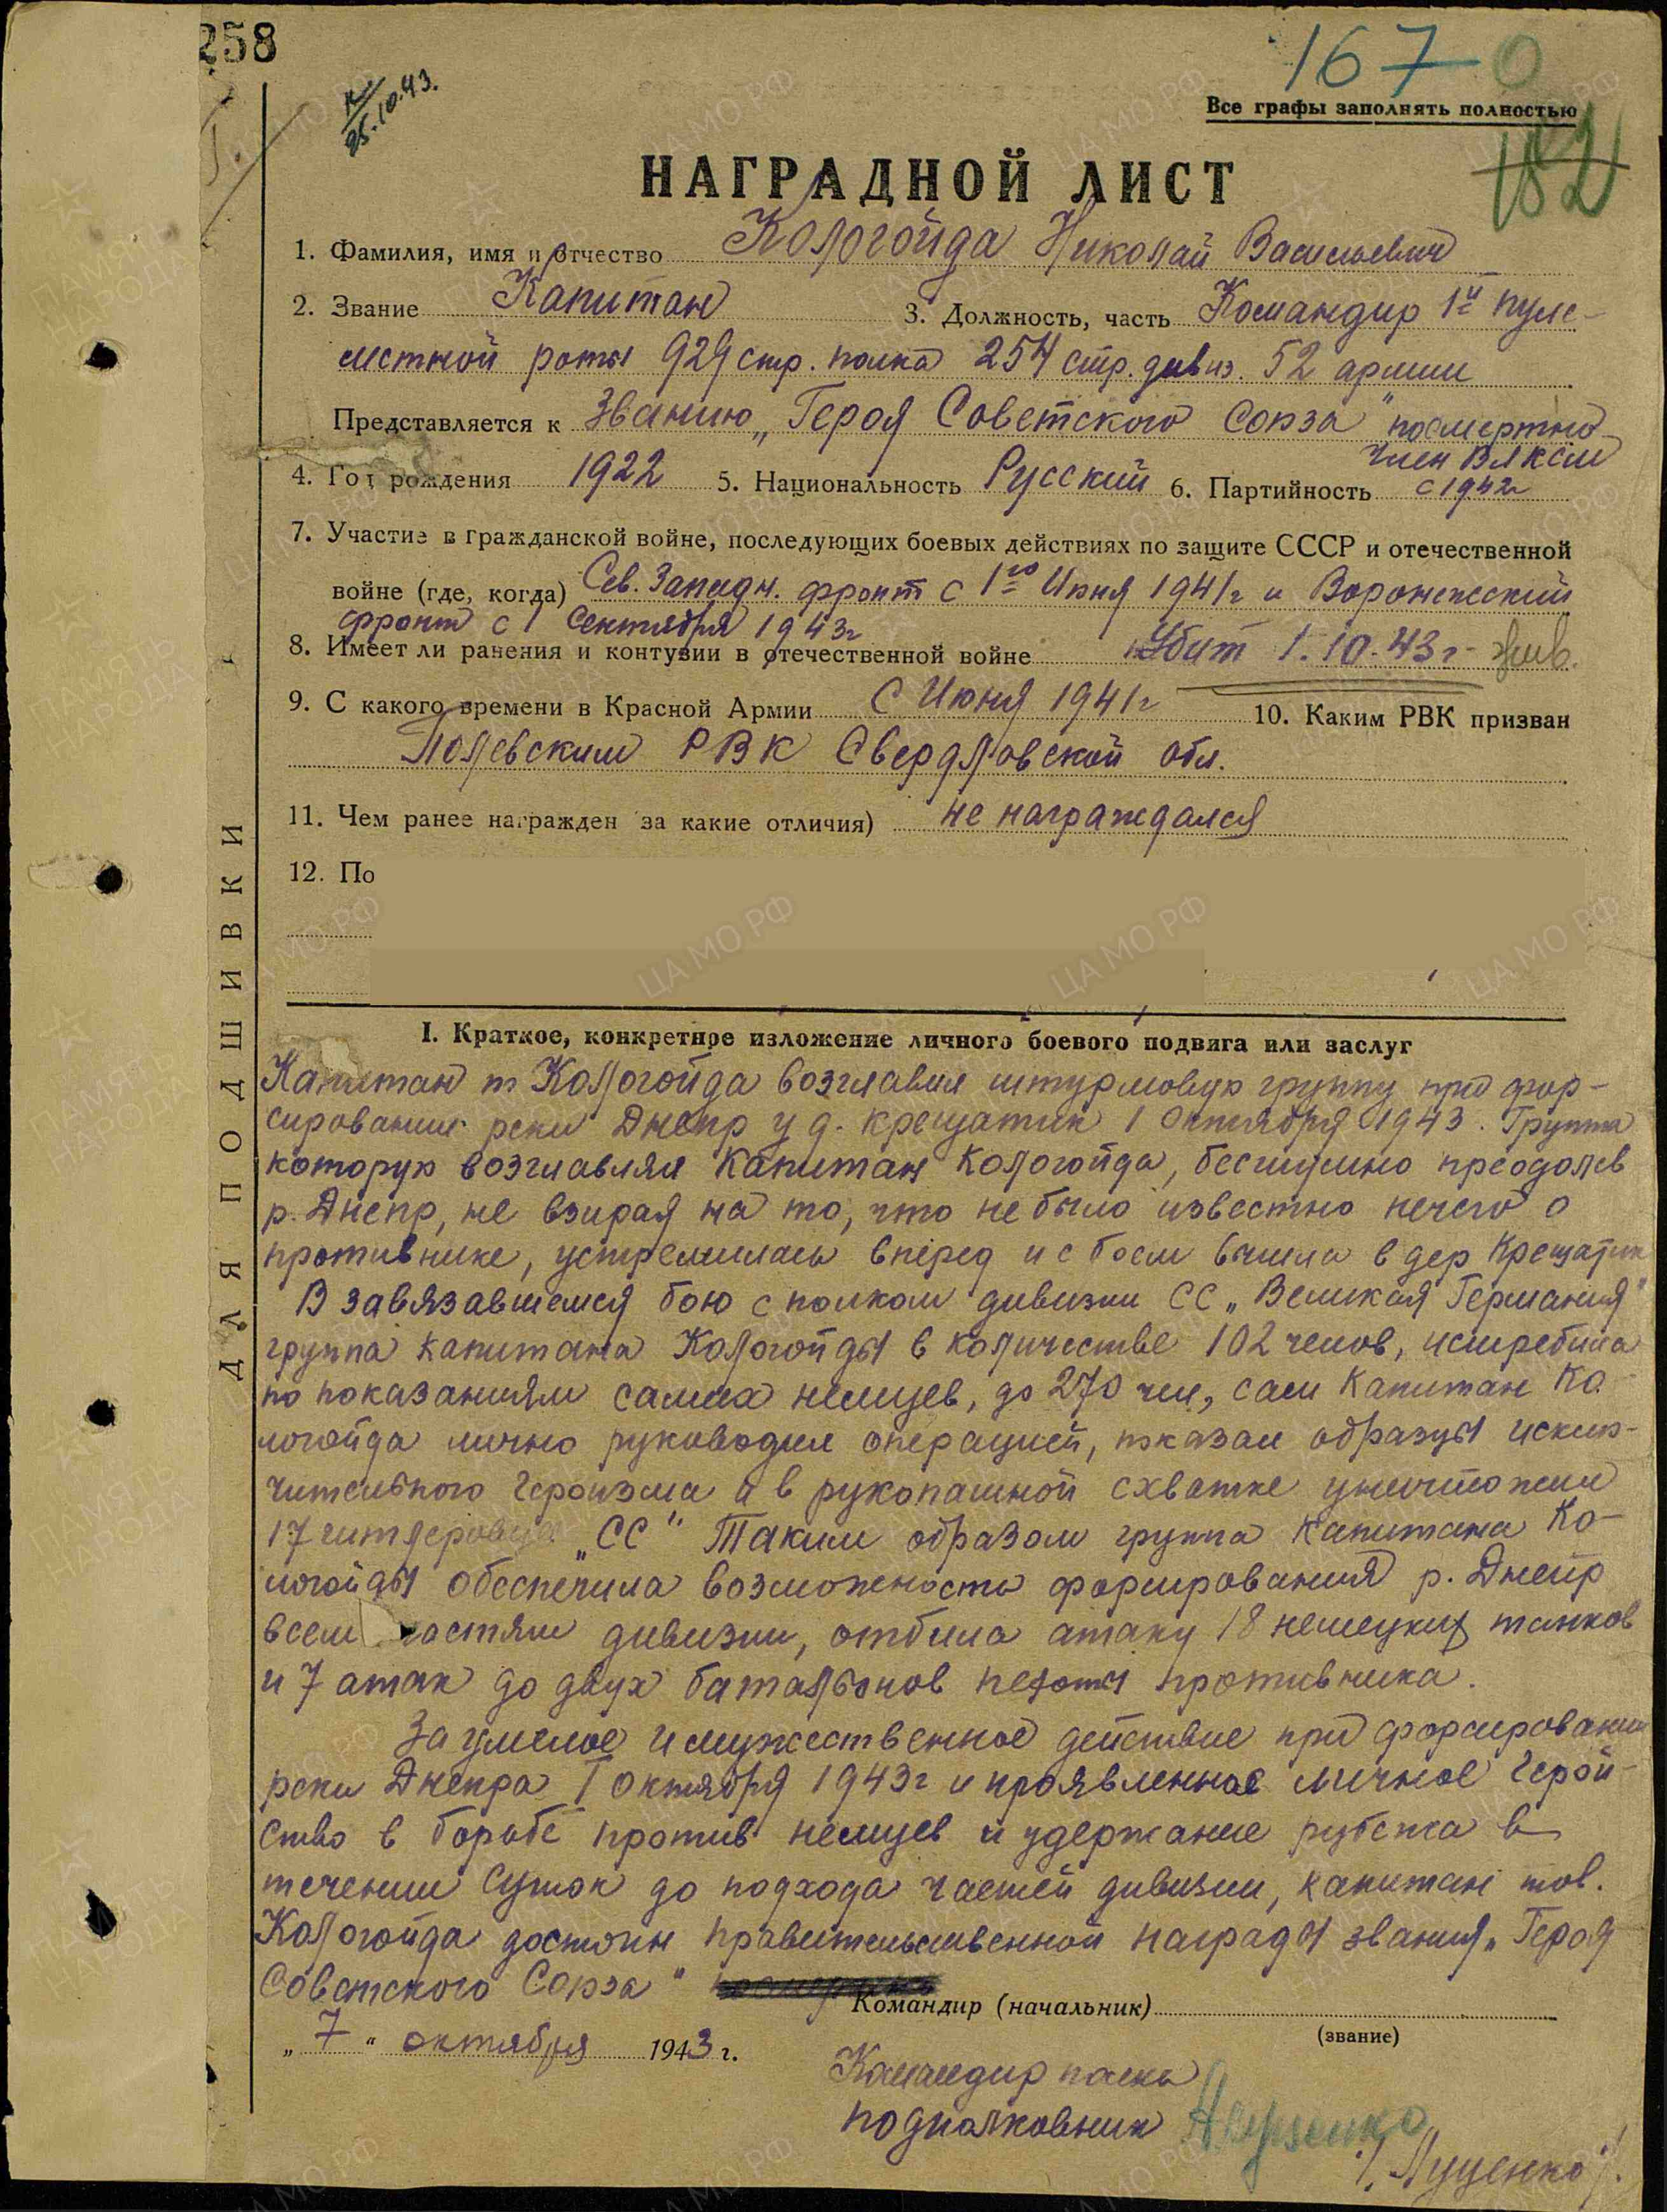 258
167 0
25.10.43.
Все графы заполнять полностью
182
НАГРАДНОЙ ЛИСТ
1. Фамилия, имя и отчество Кологойда Николай Васильевич
2. Звание Капитан 3. Должность, часть Командир 1й пуле-
метной роты 929 стр. полка 254 стр. дивиз. 52 армии
Представляется к Званию „Героя Советского Союза" посмертно
4. Год рождения 1922 5. Национальность Русский 6. Партийность Член ВЛКСМ с 1942г
7. Участие в гражданской войне, последующих боевых действиях по защите СССР и отечественной
войне (где, когда) Сев. Западн. фронт с 1го Июня 1941г и Воронежский
фронт с 1 Сентября 1943г
8. Имеет ли ранения и контузии в отечественной войне Убит 1.10.43г- жив.
9. С какого времени в Красной Армии С Июня 1941г 10. Каким РВК призван
Полевским РВК Свердловской обл.
11. Чем ранее награжден за какие отличия) не награждался
12. По
I. Краткое, конкретное изложение личного боевого подвига или заслуг
Капитан т Кологойда возглавил штурмовую группу при фор-
сировании реки Днепр у д. Крещатик 1 Октября 1943. Группа
которую возглавлял Капитан Кологойда, бесшумно преодолев
р. Днепр, не взирая на то, что не было известно нечего о
противнике, устремилась вперед и с боем вышла в дер Крещатик
В завязавшемся бою с полком дивизии СС „Великая Германия"
группа капитана Кологойды в количестве 102 челов, истребила
по показаниям самих немцев, до 270 чел, сам Капитан Ко-
логойда лично руководил операцией, показал образцы исклю-
чительного героизма и в рукопашной схватке уничтожил
17 гитлеровцев „СС" Таким образом группа Капитана Ко-
логойды обеспечила возможность форсирования р. Днепр
всем частям дивизии, отбила атаку 18 немецких танков
и 7 атак до двух батальонов пехоты противника.
За умелое и мужественное действие при форсировании
реки Днепра 1 октября 1943г и проявленное личное герой-
ство в борьбе против немцев и удержание рубежа в
течении суток до подхода частей дивизии, капитан тов.
Кологойда достоин правительственной награды звания „Героя
Советского Союза"
Командир (начальник)
(звание)
„7" октября 1943 г.
Командир полка
подполковник
/Луценко/.
ДЛЯ ПОДШИВКИ
ЦАМО РФ
ПАМЯТЬ НАРОДА